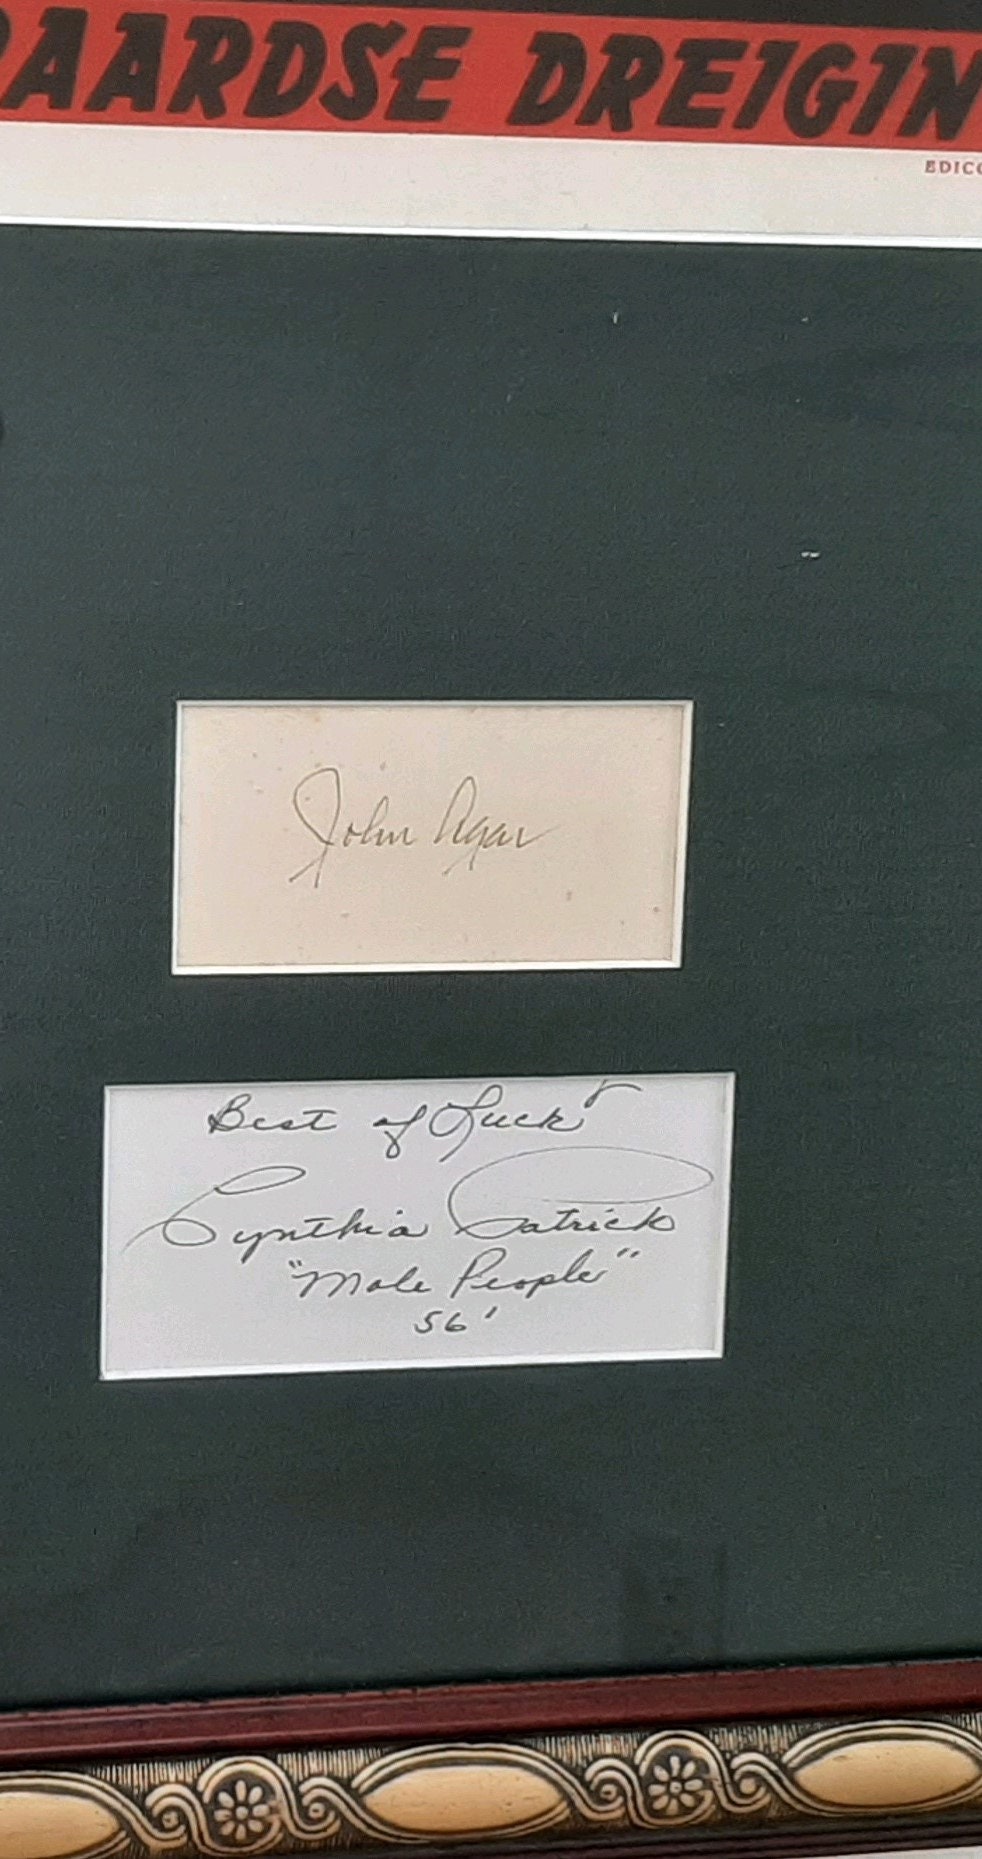 AARDSE DREIGIN
EDICO
John Agar
Best of Luck
Cynthia Patrick
"Mole People"
56'